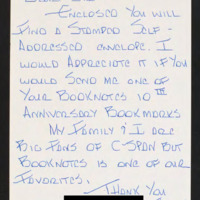 Enclosed you will
find a stamped self-
addressed envelope. I
would appreciate it if you
would send me one of
your Booknotes 10th
Anniversary Bookmarks
My family & I are
big fans of C-SPAN but
Booknotes is one of our
favorites.
Thank you